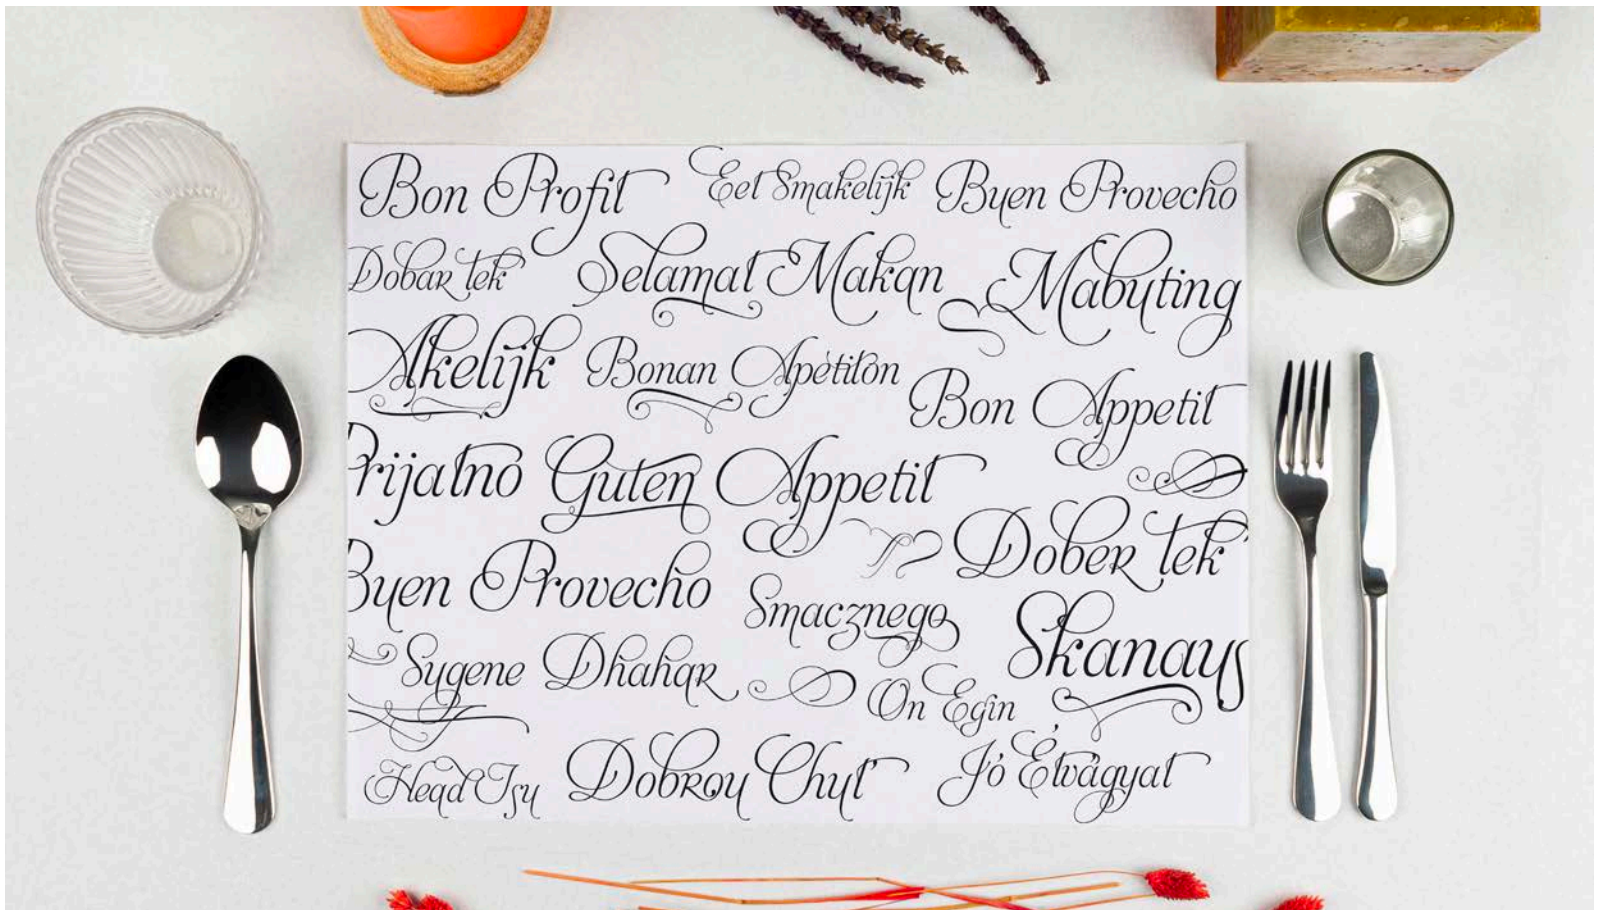 Bon Profit Eet Smakelijk Buen Provecho
Dobar tek Selamat Makan Mabuting
Akelijk Bonan Apétitón Bon Appetit
Prijatno Guten Appetit
Dober tek
Buen Provecho Smacznego Skanaus
Sygene Dhahar On Egin
Head Isu Dobrou Chut' Jó Étvágyat